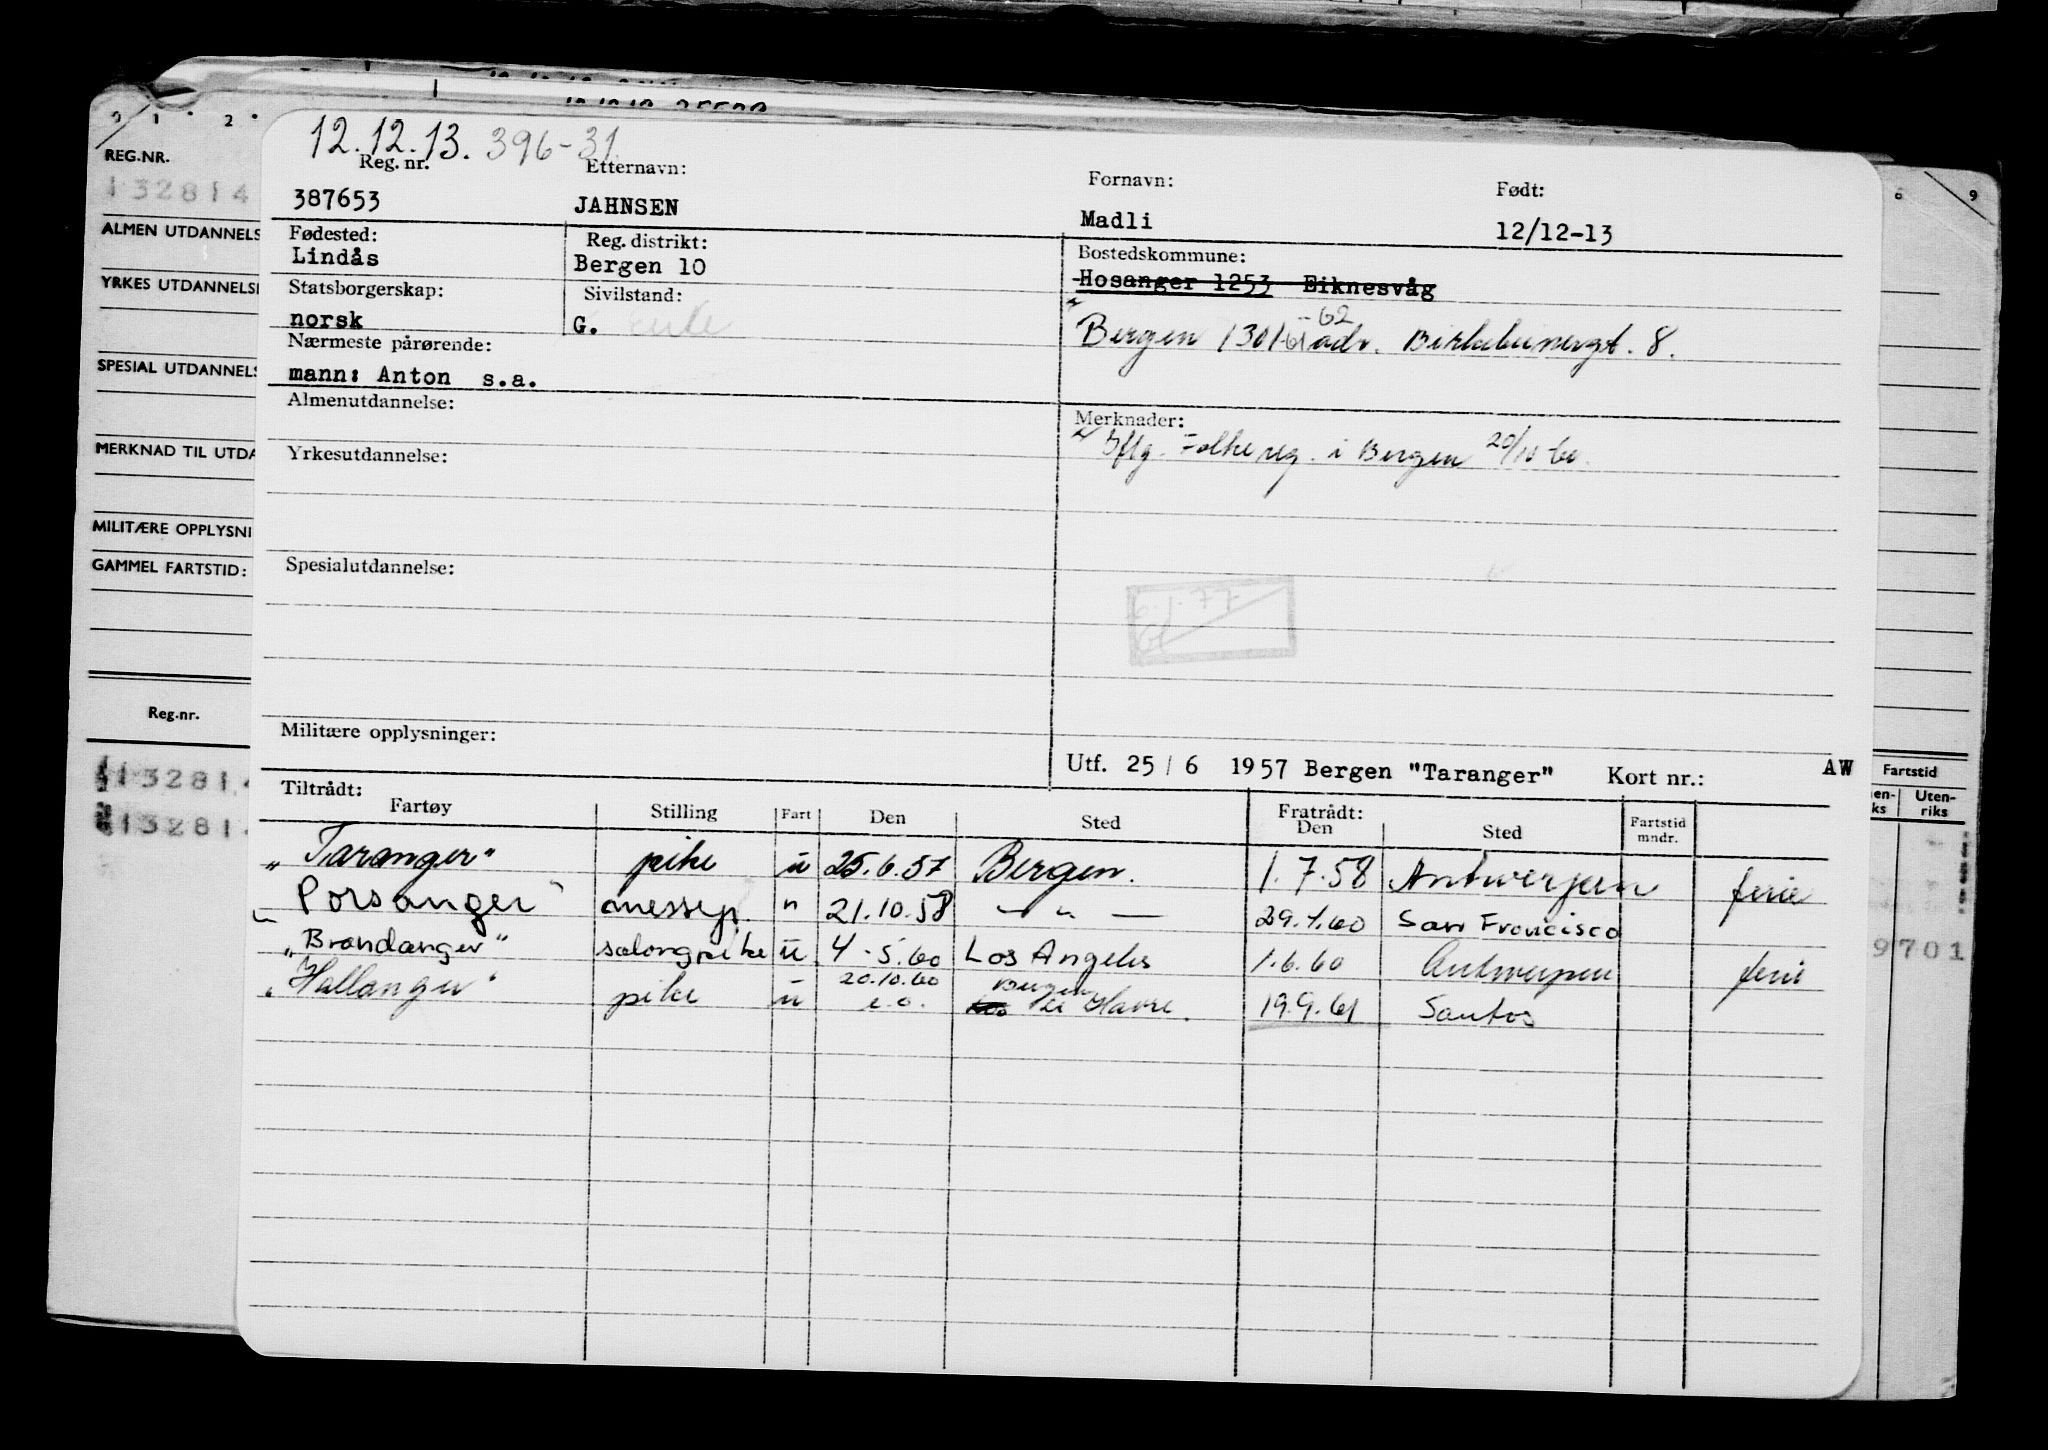 0 1 2
12.12.13. 396-31
REG.NR.
132814
Reg. nr. Etternavn: Fornavn: Født:
387653 JAHNSEN Madli 12/12-13
ALMEN UTDANNELS
Fødested: Reg. distrikt: Bostedskommune:
Lindås Bergen 10 Hosanger 1253 Eiknesvåg
YRKES UTDANNELSE
Statsborgerskap: Sivilstand:
norsk G.
-62
Bergen 1301-61 adr. Birkebeinergt. 8.
Nærmeste pårørende:
mann: Anton s.a.
SPESIAL UTDANNELS
Almenutdannelse: Merknader:
Iflg. Folkereg. i Bergen 20/10-60.
MERKNAD TIL UTDA
Yrkesutdannelse:
MILITÆRE OPPLYSNI
GAMMEL FARTSTID:
Spesialutdannelse:
6.1.77
Reg.nr.
Militære opplysninger:
Utf. 25/6 1957 Bergen "Taranger" Kort nr.: AW
13281
13281
Fartstid
Uten-
riks
Tiltrådt: Fratrådt:
Fartøy Stilling Fart Den Sted Den Sted Fartstid mndr.
"Taranger" pike u 25.6.57 Bergen. 1.7.58 Antwerpen ferie
"Porsanger" messep. " 21.10.58 — " — 29.1.60 San Francisco
"Brandanger" salongpike u 4-5.60 Los Angeles 1.6.60 Antwerpen ferie
9701
20.10.60 Bergen
"Hallanger" pike u e.o. Le Havre. 19.9.61 Santos